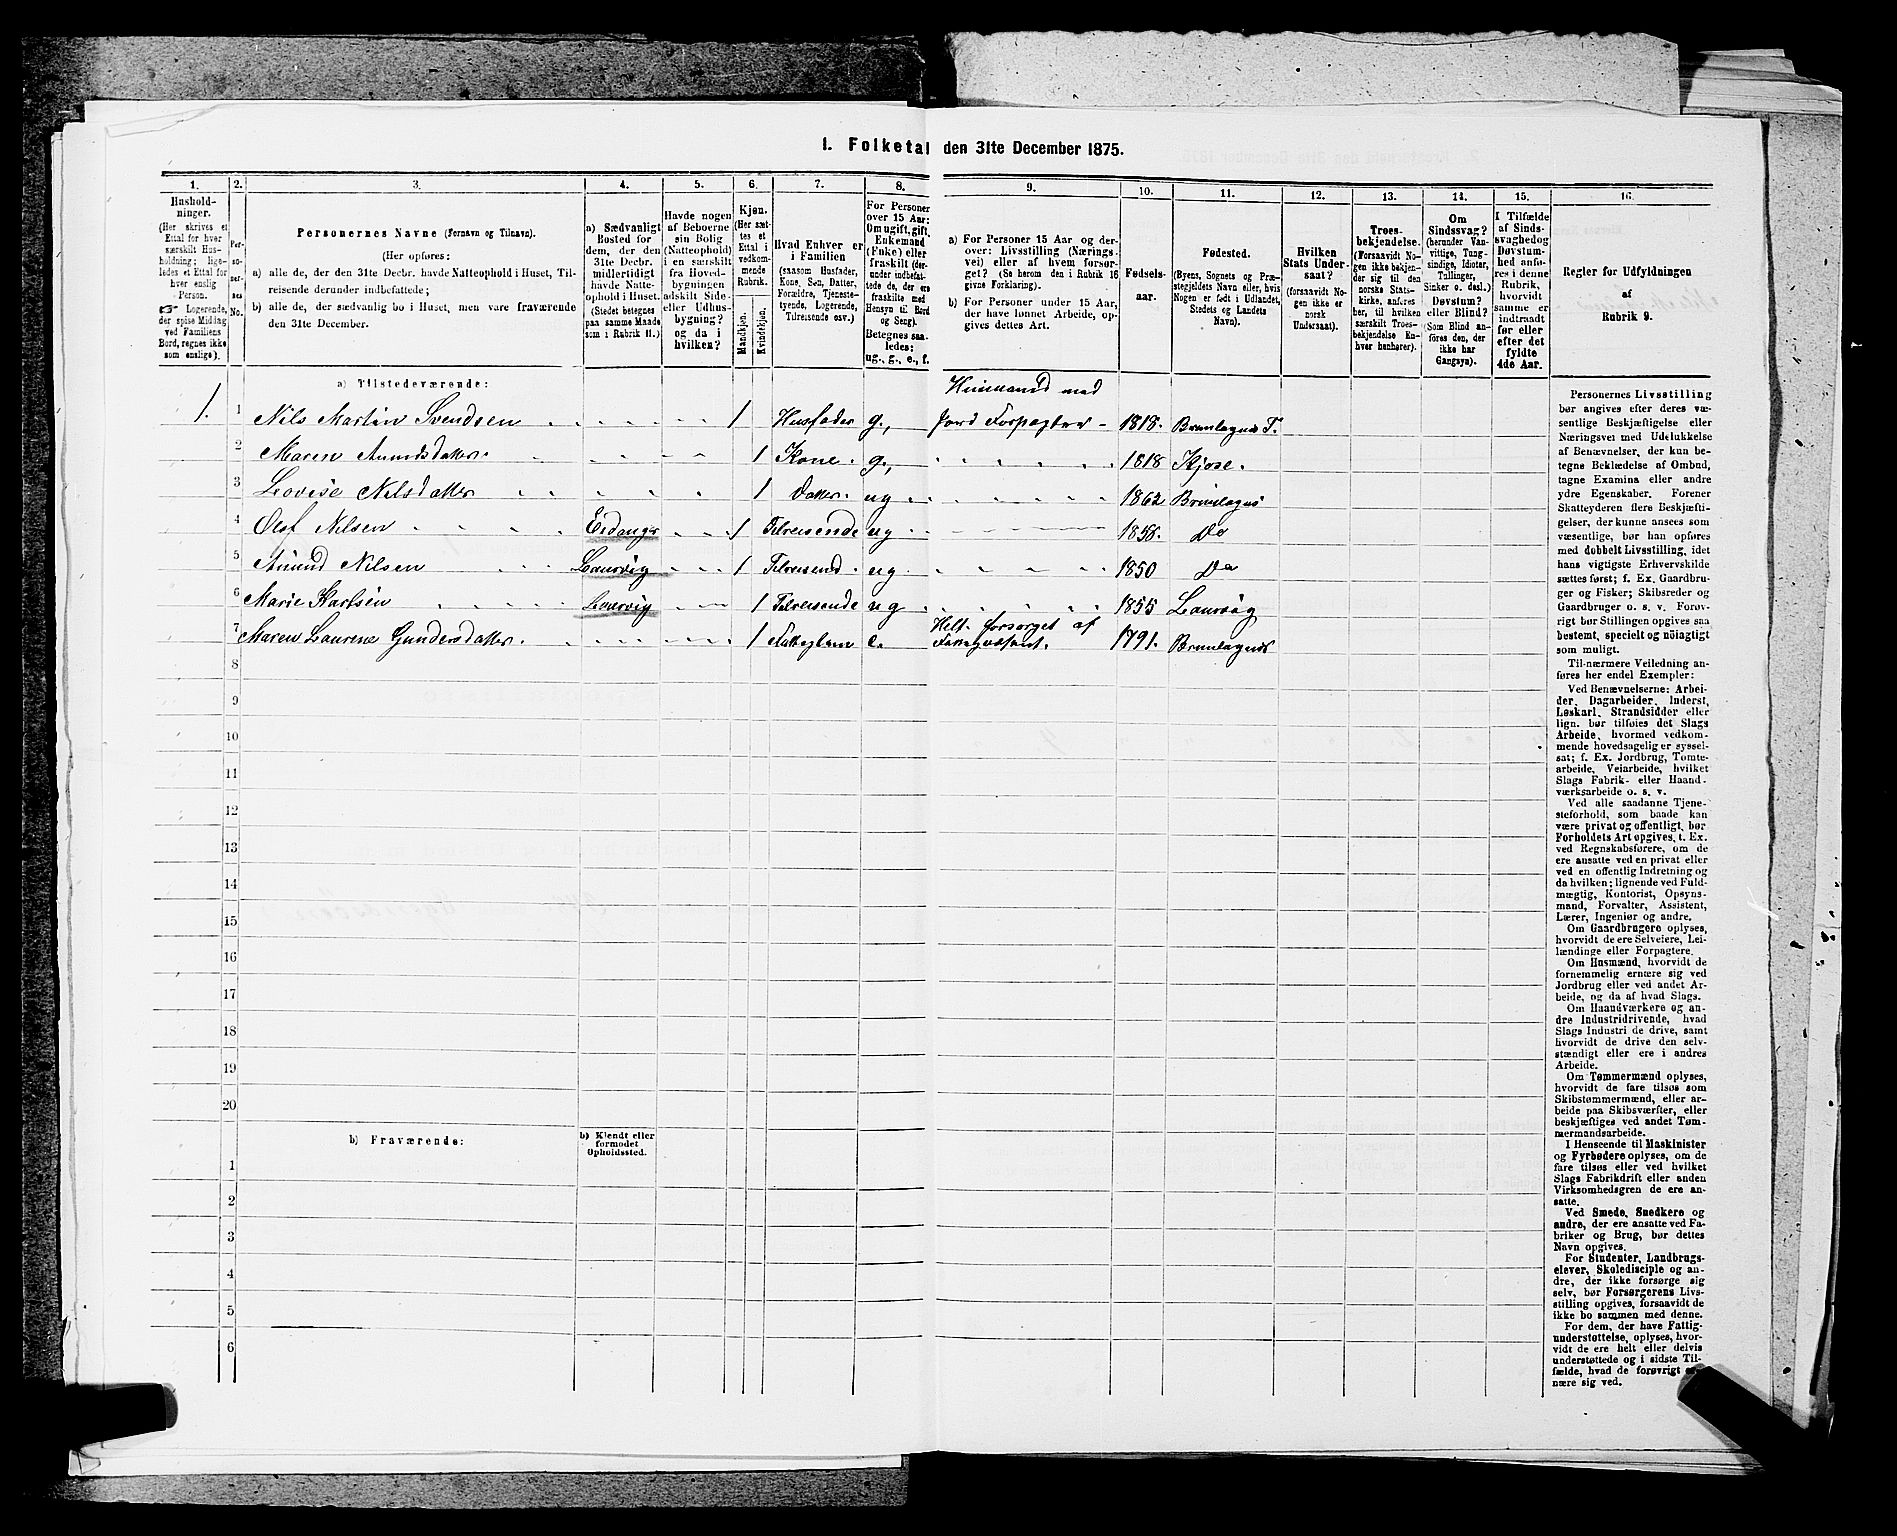 1. Folketal den 31te December 1875.
1.
Husholdninger.
(Her skrives et
Ettal for hver
særskilt Husholdning;
ligeledes
et Ettal for
hver enslig
Person.
☞ Logerende,
der spise Middag
ved Familiens
Bord, regnes ikke
som enslige).
2.
Personernes
No.
3.
Personernes Navne (Fornavn og Tilnavn).
(Her opføres:
a) alle de, der den 31te Decbr. havde Natteophold i Huset, Tilreisende
derunder indbefattede;
b) alle de, der sædvanlig bo i Huset, men vare fraværende
den 31te December.
4.
a) Sædvanligt
Bosted for
dem, der den
31te Decbr.
midlertidigt
havde Natteophold
i Huset.
(Stedet betegnes
paa samme Maade
som i Rubrik 11.)
5.
Havde nogen
af Beboerne
sin Bolig
(Natteophold)
i en særskilt
fra Hovedbygningen
adskilt Side-
eller Udhusbygning?
og da i
hvilken?
6.
Kjøn.
(Her sættes
et
Ettal i
vedkommende
Rubrik.
Mandkjøn.
Kvindekjøn.
7.
Hvad Enhver er
i Familien
(saasom Husfader,
Kone, Søn, Datter,
Forældre, Tjenestetyende,
Logerende,
Tilreisende osv.)
8.
For Personer
over 15 Aar:
Om ugift, gift,
Enkemand
(Enke) eller
fraskilt (derunder
indbefattede
de, der ere
fraskilte med
Hensyn til Bord
og Seng).
Betegnes saaledes:
ug., g., e., f.
9.
a) For Personer 15 Aar og derover:
Livsstilling (Næringsvei)
eller af hvem forsørget?
(Se herom den i Rubrik 16
givne Forklaring).
b) For Personer under 15 Aar,
der have lønnet Arbeide, opgives
dettes Art.
10.
Fødselsaar.
11.
Fødested.
(Byens, Sognets og Præstegjeldets
Navn eller, hvis
Nogen er født i Udlandet,
Stedets og Landets
Navn).
12.
Hvilken
Stats Undersaat?
(forsaavidt Nogen
ikke er
norsk
Undersaat).
13.
Troesbekjendelse.
(Forsaavidt Nogen
ikke bekjender
sig til den
norske Statskirke,
anføres
her, til hvilken
særskilt Troesbekjendelse
Enhver
henhører).
14.
Om
Sindssvag?
(herunder Vanvittige,
Tungsindige,
Idioter,
Tullinger,
Sinker o. desl.)
Døvstum?
eller Blind?
(Som Blind anføres
den, der
ikke har
Gangsyn).
15.
I Tilfælde
af Sindssvaghed
og
Døvstumhed
anføres
i denne
Rubrik,
hvorvidt
samme er
indtraadt
før eller
efter det
fyldte
4de Aar.
16.
Regler for Udfyldningen
af
Rubrik 9.
a) Tilstedeværende:
Huusmand med
1. 1 Nils Martin Svendsen 1 Husfader g., Jord Forpagter 1818. Brunlagnes T.
2 Maren Amundsdatter 1 Kone. g., 1818 Kjose.
3 Lovise Nilsdatter 1 Datter. ug 1862 Brunlagnes
4 Olaf Nilsen Eidanger 1 Tilreisende ug 1858. Do
5 Amund Nilsen Laurvig 1 Tilreisend. ug 1850 Do
6 Marie Karlsen Laurvig 1 Tilreisende ug 1855 Laurvig
7 Maren Laurene Gundersdatter 1 Fattiglem e. Helt forsørget af
Fattigvæsent. 1791. Brunlagnes
8
9
10
11
12
13
14
15
16
17
18
19
20
b) Fraværende:
b) Kjendt eller
formodet
Opholdssted.
1
2
3
4
5
6
Personernes Livsstilling
bør angives efter deres væsentlige
Beskjæftigelse eller
Næringsvei med Udelukkelse
af Benævnelser, der kun betegne
Beklædelse af Ombud,
tagne Examina eller andre
ydre Egenskaber. Forener
Skatteyderen flere Beskjæftigelser,
der kunne ansees som
væsentlige, bør han opføres
med dobbelt Livsstilling, idet
hans vigtigste Erhvervskilde
sættes først; f. Ex. Gaardbruger
og Fisker; Skibsreder og
Gaardbruger o. s. v. Forøvrigt
bør Stillingen opgives saa
bestemt, specielt og nøiagtigt
som muligt.
Til nærmere Veiledning anføres
her endel Exempler:
Ved Benævnelserne: Arbeider,
Dagarbeider, Inderst,
Løskarl, Strandsidder eller
lign. bør tilføies det Slags
Arbeide, hvormed vedkommende
hovedsagelig er sysselsat;
f. Ex. Jordbrug, Tomtearbeide,
Veiarbeide, hvilket
Slags Fabrik- eller Haandværksarbeide
o. s. v.
Ved alle saadanne Tjenesteforhold,
som baade kan
være privat og offentligt, bør
Forholdets Art opgives, t. Ex.
ved Regnskabsførere, om de
ere ansatte ved en privat eller
ved en offentlig Indretning og
da hvilken; lignende ved Fuldmægtig,
Kontorist, Opsynsmand,
Forvalter, Assistent,
Lærer, Ingeniør og andre.
Om Gaardbrugere oplyses,
hvorvidt de ere Selveiere, Leilændinge
eller Forpagtere.
Om Husmænd, hvorvidt de
fornemmelig ernære sig ved
Jordbrug eller ved andet Arbeide,
og da af hvad Slags.
Om Haandværkere og andre
Industridrivende, hvad
Slags Industri de drive, samt
hvorvidt de drive den selvstændigt
eller ere i andres
Arbeide.
Om Tømmermænd oplyses,
hvorvidt de fare tilsøs som
Skibstømmermænd, eller arbeide
paa Skibsværfter, eller
beskjæftiges ved andet Tømmermandsarbeide.
I Henseende til Maskinister
og Fyrbødere oplyses, om de
fare tilsøs eller ved hvilket
Slags Fabrikdrift eller anden
Virksomhedsgren de ere ansatte.
Ved Smede, Snedkere og
andre, der ere ansatte ved Fabriker
og Brug, bør dettes
Navn opgives.
For Studenter, Landbrugselever,
Skoledisciple og andre,
der ikke forsørge sig
selv, bør Forsørgerens Livsstilling
opgives, forsaavidt de
ikke bo sammen med denne.
For dem, der have Fattigunderstøttelse,
oplyses, hvorvidt
de ere helt eller delvis
understøttede og i sidste Tilfælde,
hvad de forøvrigt ernære
sig ved.